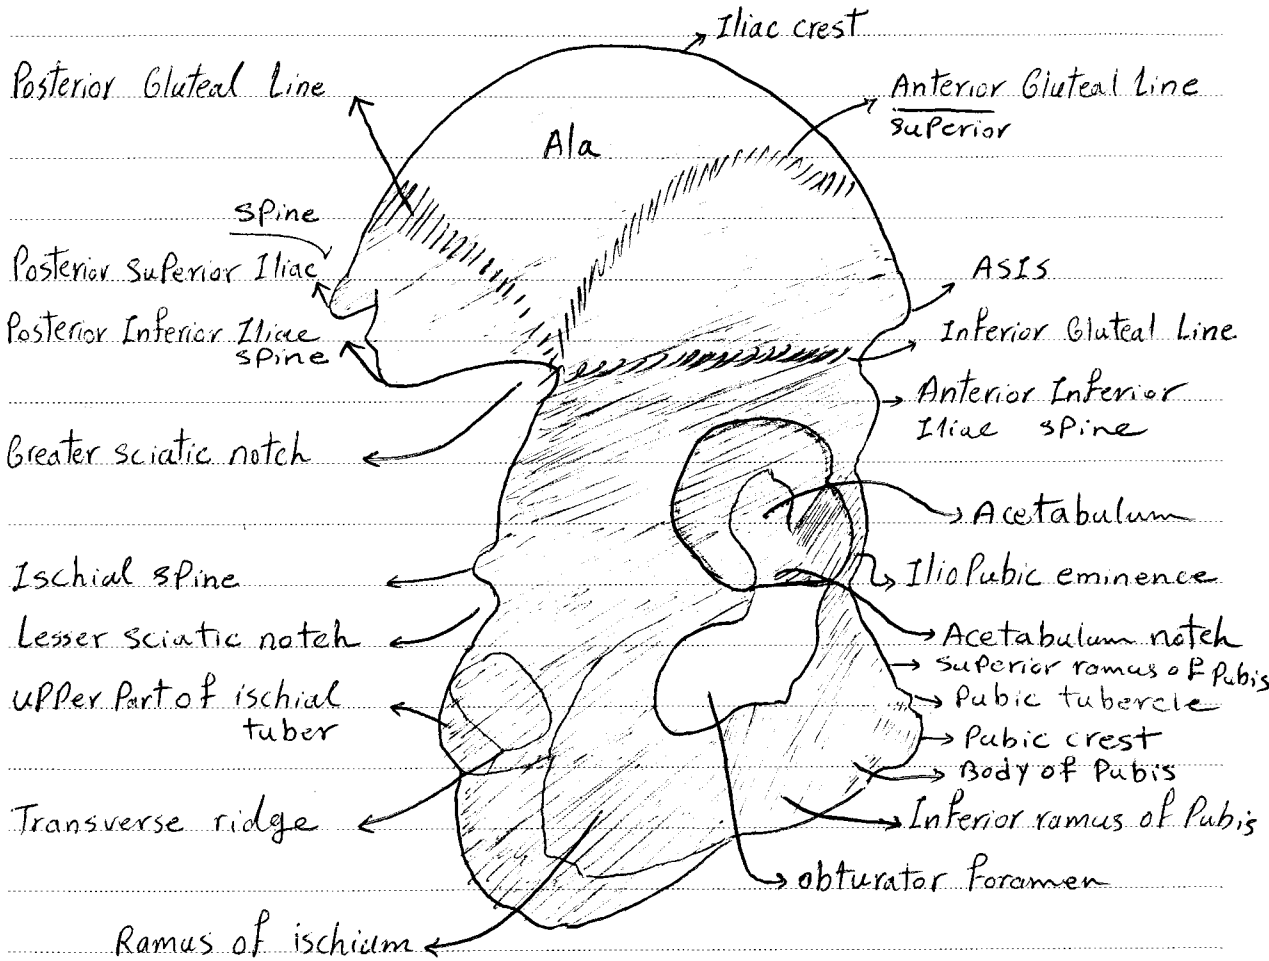 Iliac crest
Posterior Gluteal Line
Anterior Gluteal Line
superior
Ala
spine
Posterior superior Iliac
ASIS
Posterior Inferior Iliac
spine
Inferior Gluteal Line
Anterior Inferior
Iliac spine
Greater sciatic notch
Acetabulum
Ischial spine
IlioPubic eminence
Lesser sciatic notch
Acetabulum notch
superior ramus of Pubis
upper Part of ischial
tuber
Pubic tubercle
Pubic crest
Body of Pubis
Transverse ridge
Inferior ramus of Pubis
obturator foramen
Ramus of ischium